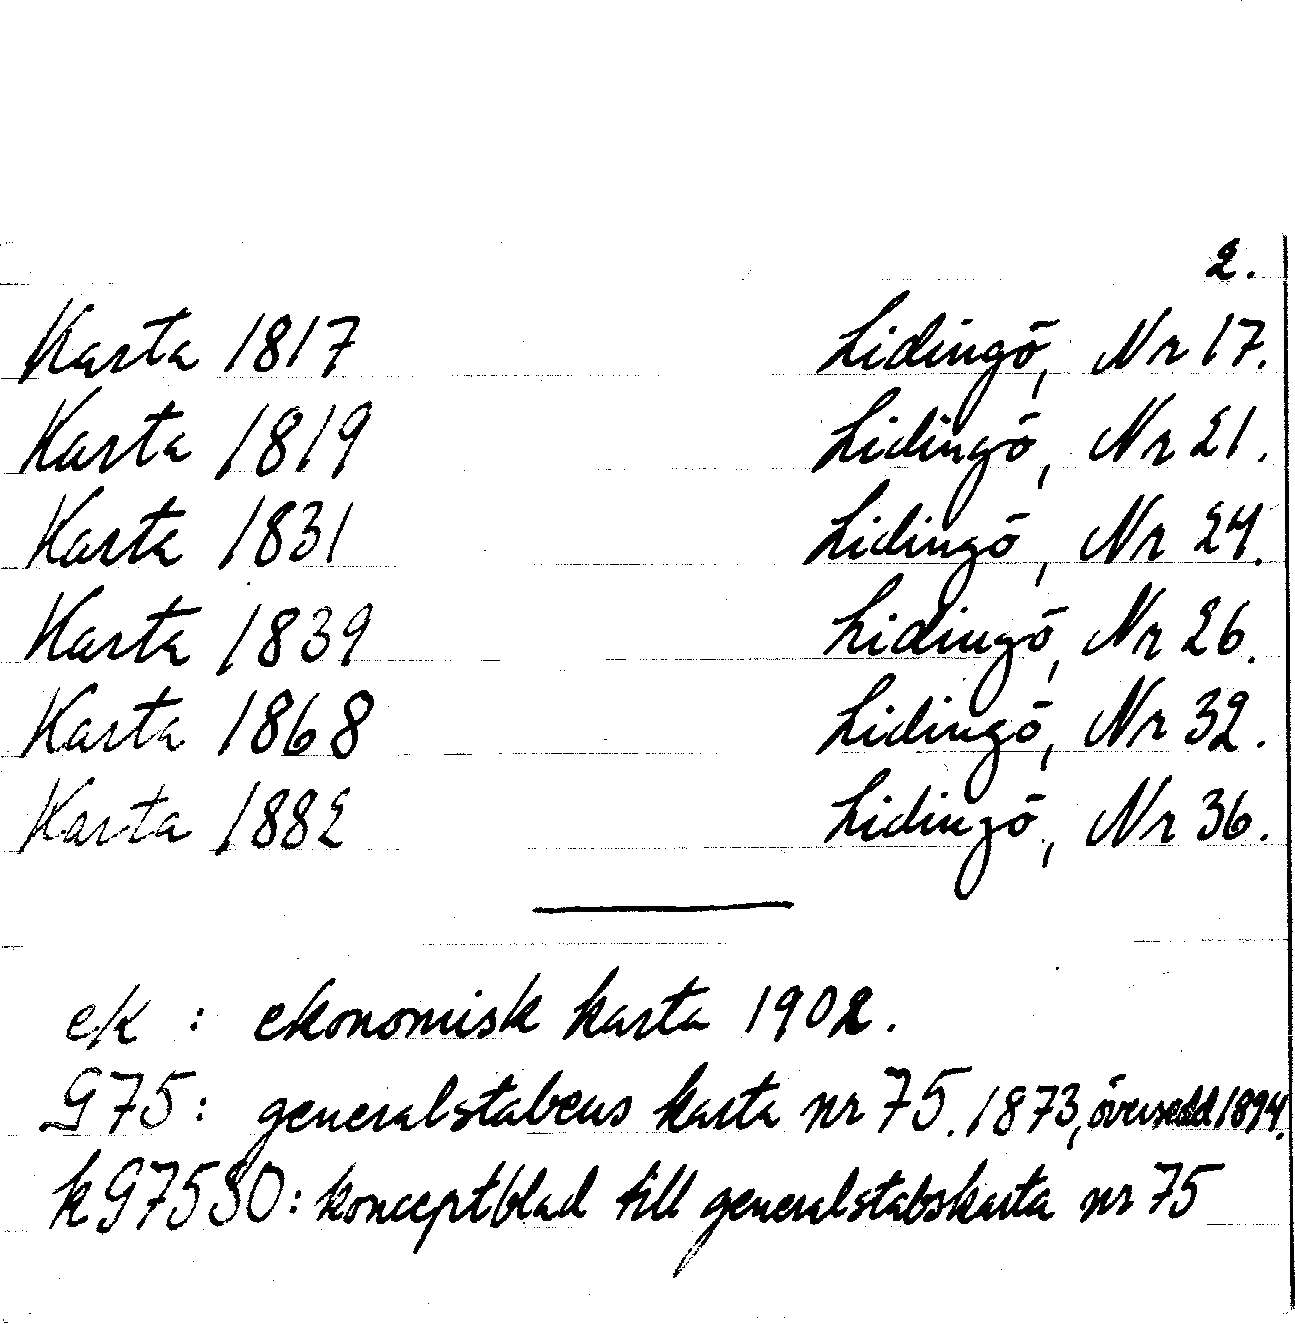 2.
Karta 1817 Lidingö, Nr 17.
Karta 1819 Lidingö, Nr 21.
Karta 1831 Lidingö, Nr 24.
Karta 1839 Lidingö, Nr 26.
Karta 1868 Lidingö, Nr 32.
Karta 1882 Lidingö, Nr 36.
ek : ekonomisk karta 1902.
G75: generalstabens karta nr 75. 1873, översedd 1894.
kG75SO: konceptblad till generalstabskarta nr 75